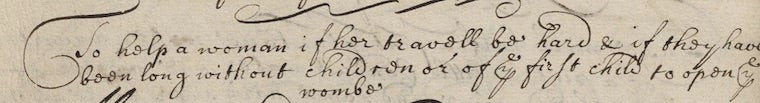 To help a woman if her travell be hard & if they have
been long without children or of yͤ first child to open yͤ
wombe